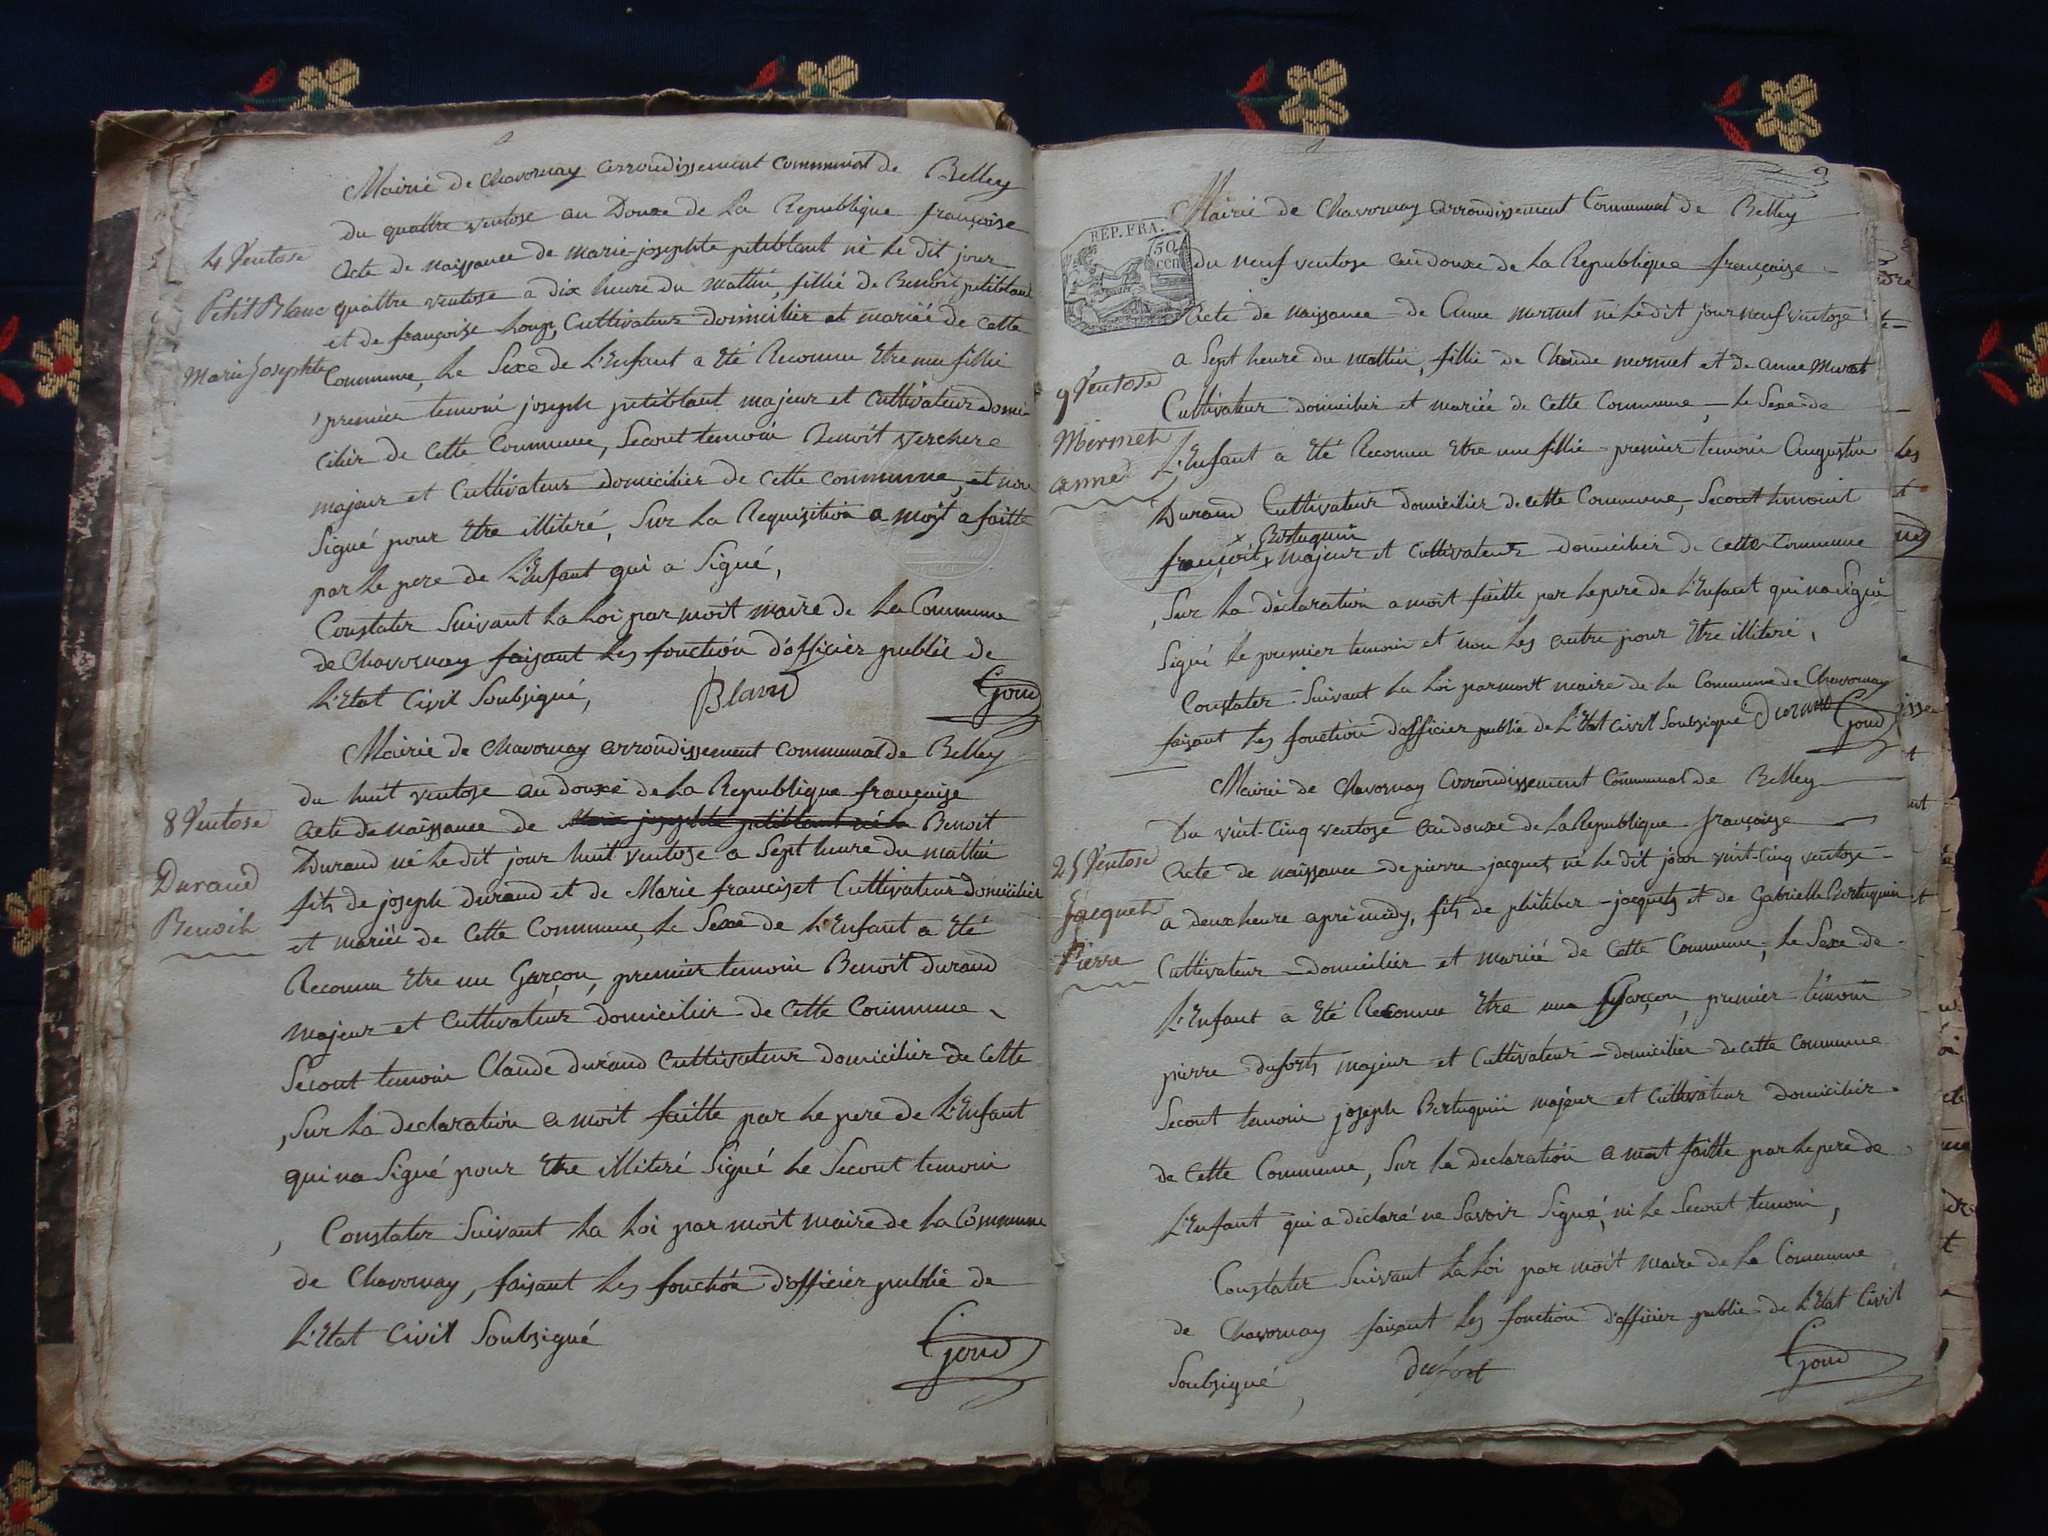 Mairie de Chavornay arrondissement Communal de Belley
du quattre ventose an Douxe de La Republique françoise
4 Ventose
Acte de naissance de marie josephte petiblant né Le dit jour
Petit Blanc
quattre ventose a dix heure du mattin, fillié de Benoit petiblant
et de françoise Loup, Cultivateur domicilier et mariéé de Cette
Marie Josephte
Commune, Le Sexe de L'Enfant a Eté Reconnu Etre une fillie
premier temoin joseph petiblant majeur et Cultivateur domi-
cilier de Cette Commune, Secont temoin Benoit Verchere
majeur et Cultivateur domicilier de Cette Commune, et non
Signé pour Etre illiteré, Sur La Requisition a moit a faitte
par Le pere de L'Enfant qui a Signé,
Constater Suivant La Loi par moit maire de La Commune
de Chavornay faisant Les fonction d'officier public de
L'Etat Civil Soubsigné, Blanc Goud
Mairie de Chavornay arrondissement Communal de Belley
du huit ventose an douxe de La Republique françaize
8 Ventose
Acte de naissance de Marie josephte petiblant né Le Benoit
Durand né Le dit jour huit ventose a Sept heure du mattin
Durand
fils de joseph durand et de Marie francizet Cultivateur domicilier
Benoit
et mariéé de Cette Commune, Le Sexe de L'Enfant a Eté
Reconnu Etre un Garçon, premier temoin Benoit durand
majeur et Cultivateur domicilier de Cette Commune
Secont temoin Claude durand Cultivateur domicilier de Cette
, Sur La declaration a moit faitte par Le pere de L'Enfant
qui na Signé pour Etre illiteré Signé Le Secont temoin
, Constater Suivant La Loi par moit maire de La Commune
de Chavornay, faisant Les fonction d'officier public de
L'Etat Civil Soubsigné Goud
Mairie de Chavornay arrondissement Communal de Belley
REP. FRA.
50
cen
du neuf ventose an douxe de La Republique françaize
Acte de naissance de Anne mermet né Le dit jour neuf ventose
a Sept heure du mattin, fillie de Claude mermet et de anne Murat
9 Ventose
Cultivateur domicilier et mariéé de Cette Commune, Le Sexe de
Mermet
L'Enfant a Eté Reconnu Etre une fillie premier temoin Augustin
anne
Durand Cultivateur domicilier de Cette Commune, Secont temoint
x Bertuquin
françoit x majeur et Cultivateur domicilier de Cette Commune
, Sur La déclaration a moit faitte par Le pere de L'Enfant qui na Signé
Signé Le premier temoin et non Les autre pour Etre illiteré,
Constater Suivant La Loi par moit maire de La Commune de Chavornay
faisant Les fonction d'officier public de L'Etat Civil Soubsigné Durand Goud
Mairie de Chavornay arrondissement Communal de Belley
Du vint-Cinq ventose an douxe de La Republique françaize
25 Ventose
Acte de naissance de pierre jacquet né Le dit jour vint-Cinq ventose
Jacquet
a deux heure aprè midy, fils de philiber jacquet et de Gabrielle Bertuquin
Pierre
Cultivateur domicilier et mariéé de Cette Commune, Le Sexe de
L'Enfant a Eté Reconnu Etre un Garçon, premier temoin
pierre dufort, majeur et Cultivateur domicilier de Cette Commune
Secont temoin joseph Bertuquin majeur et Cultivateur domicilier
de Cette Commune, Sur La declaration a moit faitte par Le pere de
L'Enfant qui a déclaré ne Savoir Signé, ni Le Secont temoin,
Constater Suivant La Loi par moit maire de La Commune
de Chavornay faisant Les fonction d'officier public de L'Etat Civil
Soubsigné, dufort Goud